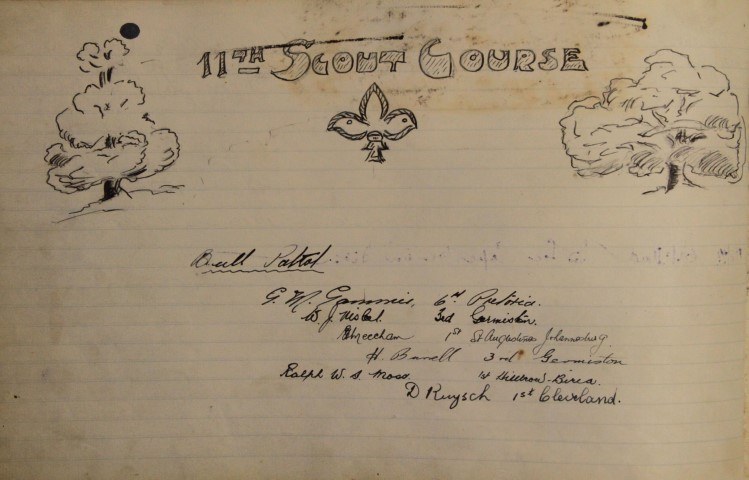 11TH SCOUT COURSE
Bull Patrol
G. M. Gammie, 6th Pretoria.
W. J. Nisbet. 3rd Germiston.
1st St Augustines Johannesburg
H. Burell 3rd Germiston
Ralph W. S. Moss. 1st Hillbrow-Berea.
D Kuysch 1st Cleveland.